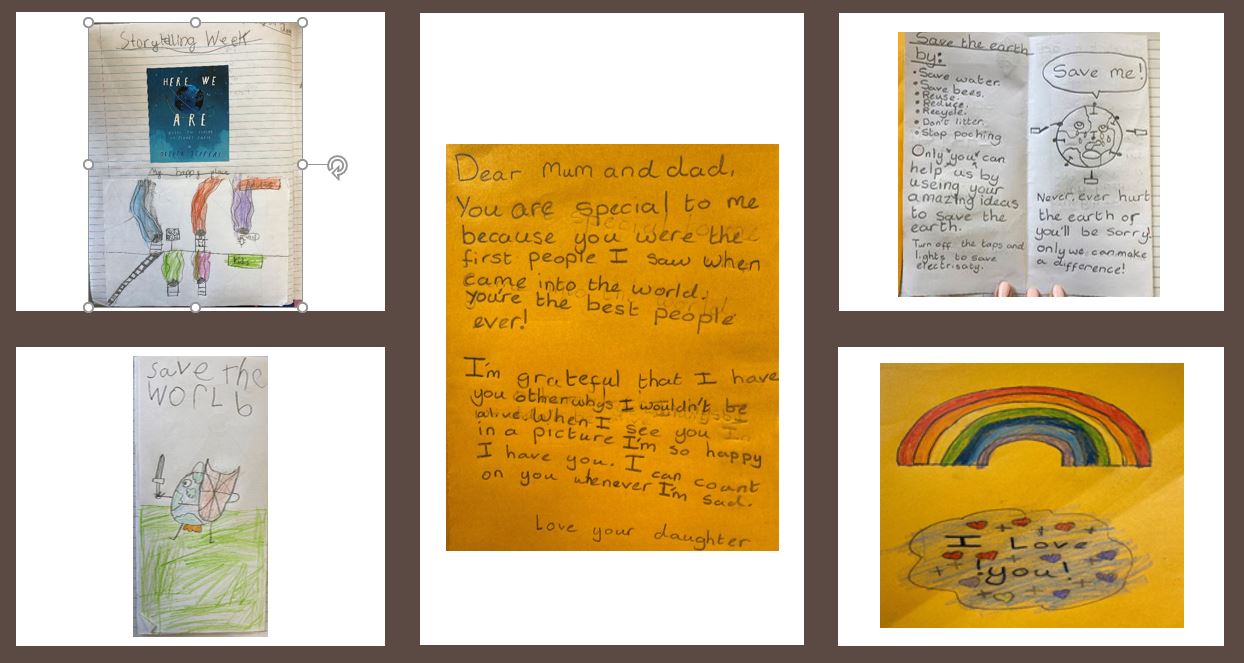 Storytelling Week
HERE WE
ARE
My happy place
Kids
save the
WORLD
Dear Mum and dad,
You are special to me
because you were the
first people I saw when
came into the world.
you're the best people
ever!
I'm grateful that I have
you otherwhys I wouldn't be
alive. When I see you
in a picture I'm so happy
I have you. I can count
on you whenever I'm sad.
Love your daughter
Save the earth
by:
• Save water.
• Save bees.
• Reuse.
• Reduce.
• Recycle.
• Don't litter.
• Stop poching
Only you can
help us by
useing your
amazing ideas
to save the
earth.
Turn off the taps and
lights to save
electrisaty.
Save me!
Never, ever hurt
the earth or
you'll be sorry.
only we can make
a difference!
I Love
you!